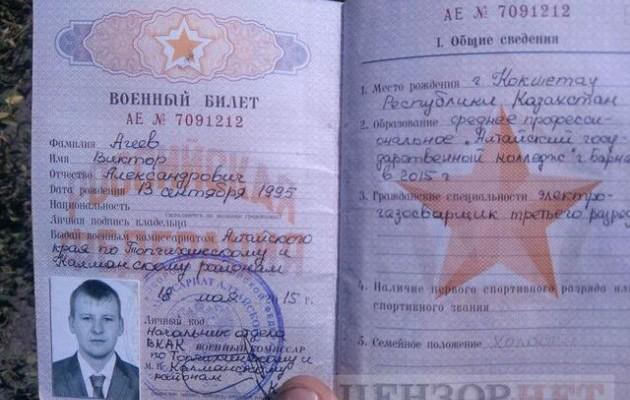 ВОЕННЫЙ БИЛЕТ
АЕ № 7091212
Фамилия Агеев
Имя Виктор
Отчество Александрович
Дата рождения 13 сентября 1995
Национальность
Личная подпись владельца
Выдан военным комиссариатом Алтайского
края по Топчихинскому и
Калманскому районам
мая 2015 г.
Личный код
Начальник отдела
ВКАК ВОЕННЫЙ КОМИССАР
по Топчихинскому и
М. П. Калманскому
районам
АЕ № 7091212
I. Общие сведения
1. Место рождения г Кокшетау
Республики Казахстан
2. Образование среднее професси-
ональное "Алтайский госу-
дарственный колледж" г Барна
в 2015 г
3. Гражданские специальности электро-
газосварщик третьего разряд
4. Наличие первого спортивного разряда или
спортивного звания
5. Семейное положение холост
ЦЕНЗОР.НЕТ